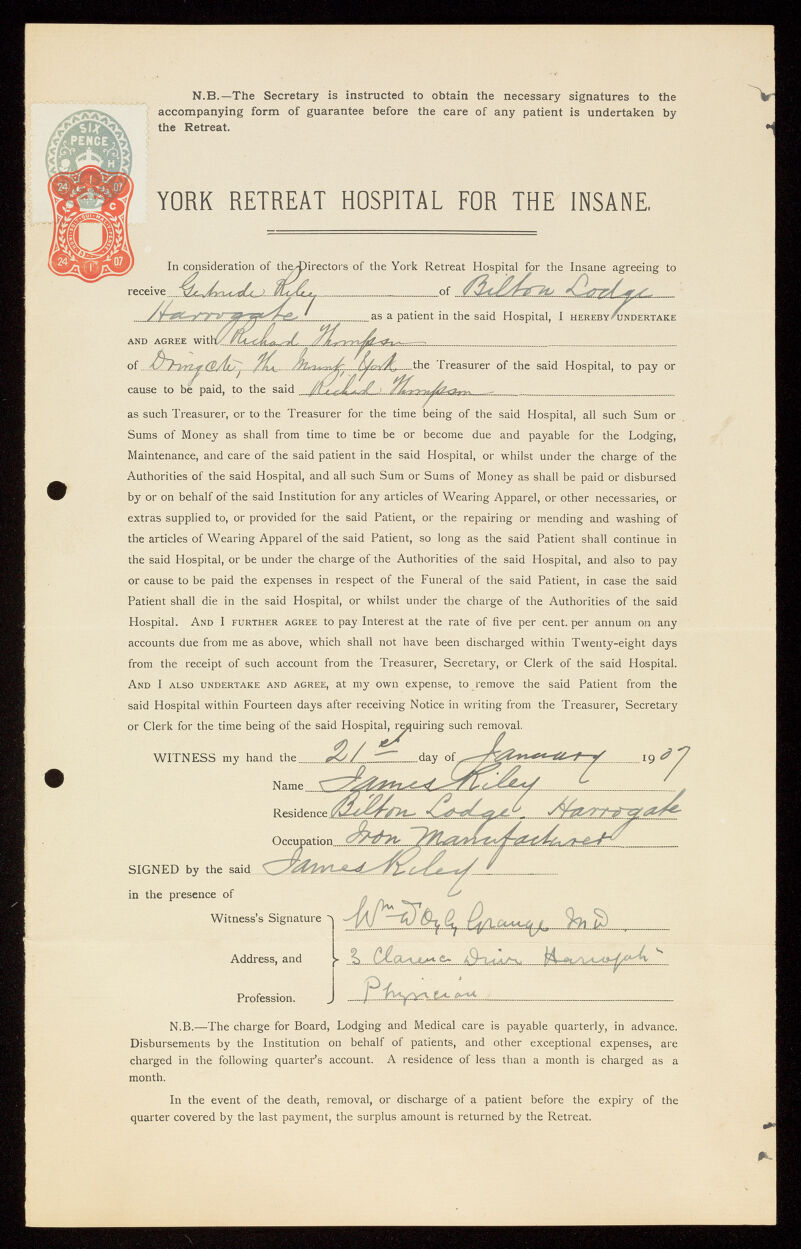 N.B.—The Secretary is instructed to obtain the necessary signatures to the
accompanying form of guarantee before the care of any patient is undertaken by
the Retreat.
SIX
PENCE
24 1 07
C
24 1 07
YORK RETREAT HOSPITAL FOR THE INSANE.
In consideration of the Directors of the York Retreat Hospital for the Insane agreeing to
receive Gertrude Riley of Bilton Lodge
Harrogate as a patient in the said Hospital, I HEREBY UNDERTAKE
AND AGREE with Richard Thompson
of The Mount, York the Treasurer of the said Hospital, to pay or
cause to be paid, to the said Richard Thompson
as such Treasurer, or to the Treasurer for the time being of the said Hospital, all such Sum or
Sums of Money as shall from time to time be or become due and payable for the Lodging,
Maintenance, and care of the said patient in the said Hospital, or whilst under the charge of the
Authorities of the said Hospital, and all such Sum or Sums of Money as shall be paid or disbursed
by or on behalf of the said Institution for any articles of Wearing Apparel, or other necessaries, or
extras supplied to, or provided for the said Patient, or the repairing or mending and washing of
the articles of Wearing Apparel of the said Patient, so long as the said Patient shall continue in
the said Hospital, or be under the charge of the Authorities of the said Hospital, and also to pay
or cause to be paid the expenses in respect of the Funeral of the said Patient, in case the said
Patient shall die in the said Hospital, or whilst under the charge of the Authorities of the said
Hospital. AND I FURTHER AGREE to pay Interest at the rate of five per cent. per annum on any
accounts due from me as above, which shall not have been discharged within Twenty-eight days
from the receipt of such account from the Treasurer, Secretary, or Clerk of the said Hospital.
AND I ALSO UNDERTAKE AND AGREE, at my own expense, to remove the said Patient from the
said Hospital within Fourteen days after receiving Notice in writing from the Treasurer, Secretary
or Clerk for the time being of the said Hospital, requiring such removal.
WITNESS my hand the 21st day of January 1907
Name James Riley
Residence Bilton Lodge. Harrogate
Occupation Iron Manufacturer
SIGNED by the said James Riley
in the presence of
Witness's Signature Wm D'Oyly Grange M D.
Address, and 3 Clarence Drive Harrogate
Profession. Physician
N.B.—The charge for Board, Lodging and Medical care is payable quarterly, in advance.
Disbursements by the Institution on behalf of patients, and other exceptional expenses, are
charged in the following quarter's account. A residence of less than a month is charged as a
month.
In the event of the death, removal, or discharge of a patient before the expiry of the
quarter covered by the last payment, the surplus amount is returned by the Retreat.